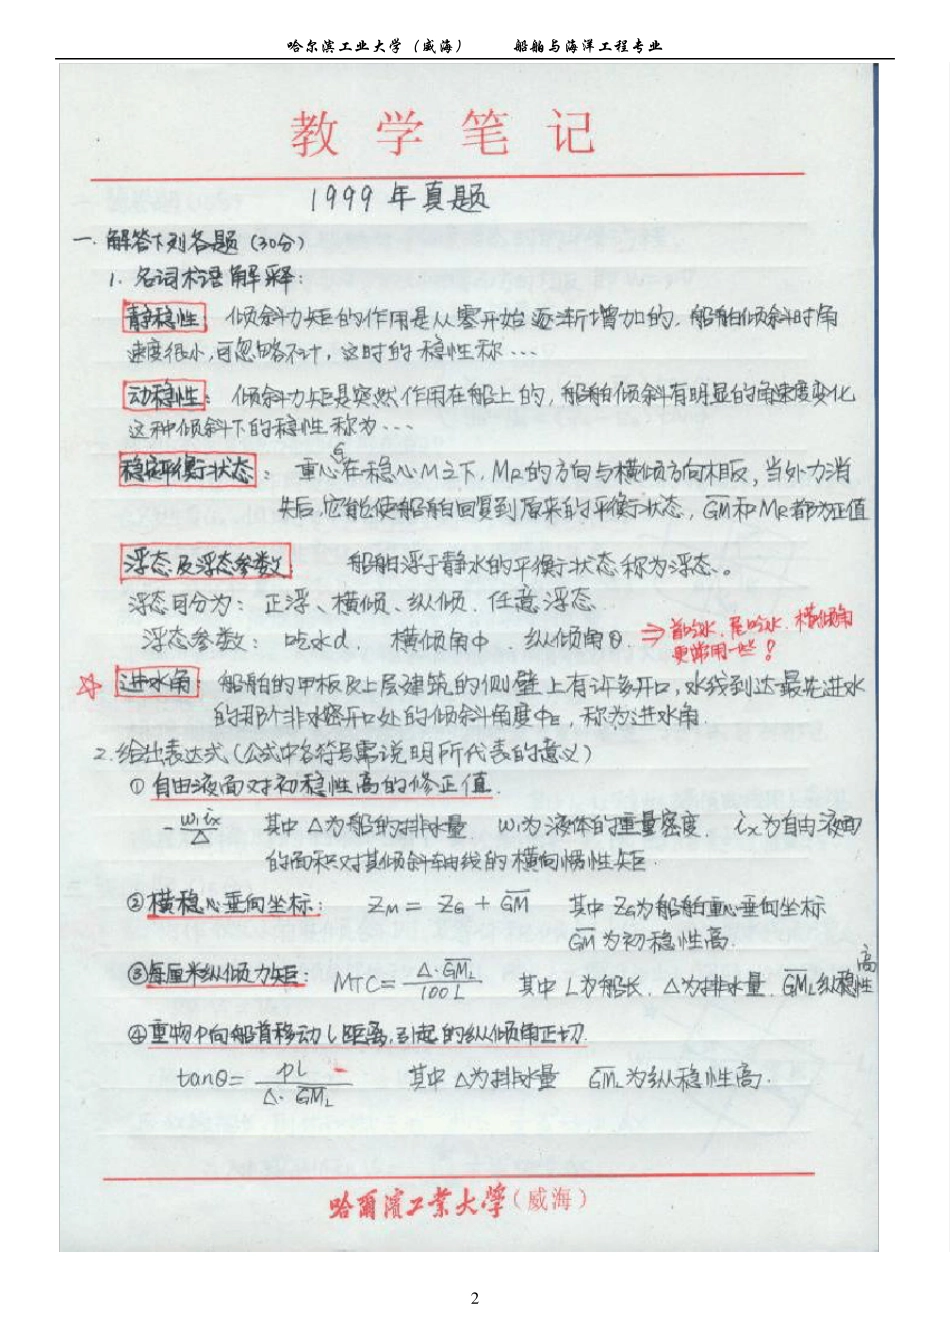 哈尔滨工业大学（威海） 船舶与海洋工程专业
教学笔记
1999年真题
一.解答下列各题(30分)
1.名词术语解释:
静稳性: 倾斜力矩的作用是从零开始逐渐增加的.船舶倾斜时角
速度很小,可忽略不计,这时的稳性称…
动稳性: 倾斜力矩是突然作用在船上的,船舶倾斜有明显的角速度变化
这种倾斜下的稳性称为…
稳定平衡状态: 重心G在稳心M之下,MR的方向与横倾方向相反,当外力消
失后,它能使船舶回复到原来的平衡状态,GM和MR都为正值
浮态及浮态参数 船舶浮于静水的平衡状态称为浮态。
浮态可分为: 正浮、横倾、纵倾.任意浮态
浮态参数: 吃水d. 横倾角φ. 纵倾角θ. ⇒首吃水.尾吃水.横倾角
更常用一些?
☆进水角: 船舶的甲板及上层建筑的侧壁上有许多开口,水线到达最先进水
的那个非水密开口处的倾斜角度φE,称为进水角.
2.给出表达式(公式中各符号需说明所代表的意义)
①自由液面对初稳性高的修正值.
w₁ix/△ 其中△为船的排水量 w₁为液体的重量密度. ix为自由液面
的面积对其倾斜轴线的横向惯性矩.
②横稳心垂向坐标: ZM = ZG + GM 其中ZG为船舶重心垂向坐标
GM为初稳性高.
③每厘米纵倾力矩: MTC= △·GML/100L 其中L为船长.△为排水量.GML纵稳性高
④重物P向船首移动l距离,引起的纵倾角正切.
tanθ= PL/△·GML 其中△为排水量 GML为纵稳性高.
哈爾濱工業大學(威海)
2